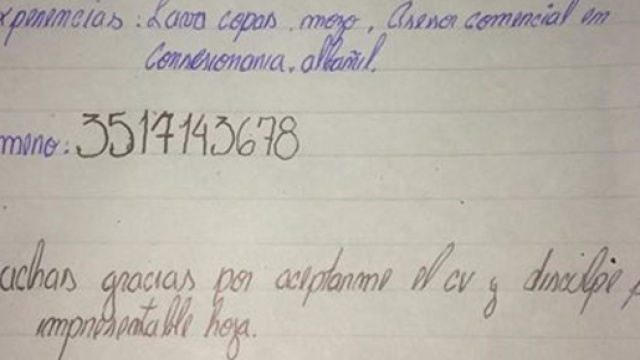 xperiencias: Lava copas. mozo, Asesor comercial en
Consesionaria, albañil.
mero: 3517143678
uchas gracias por aceptarme el cv y disculpe
impresentable hoja.